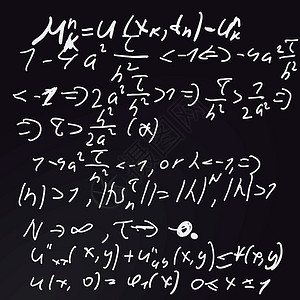 μₖⁿ = u(xₖ, tₙ) - uₖⁿ
1 - 4a² τ/h² < -1 ⇔ -4a² τ/h²
< -1 ⇒ 2a² τ/h² > 1 ⇒ τ/h² > 1/2a² ⇒
⇒ τ > h²/2a² (α)
1 - 4a² τ/h² < -1, or λ < -1, ⇒
|h| > 1, ||hⱼⁿ|| = |λ|ᴺ, |λ| > 1
N → ∞, τ → 0.
u''ₓₓ(x, y) + u''ᵧᵧ(x, y) = Ψ(x, y)
u(x, 0) = φ₁(x) 0 ≤ x ≤ 1